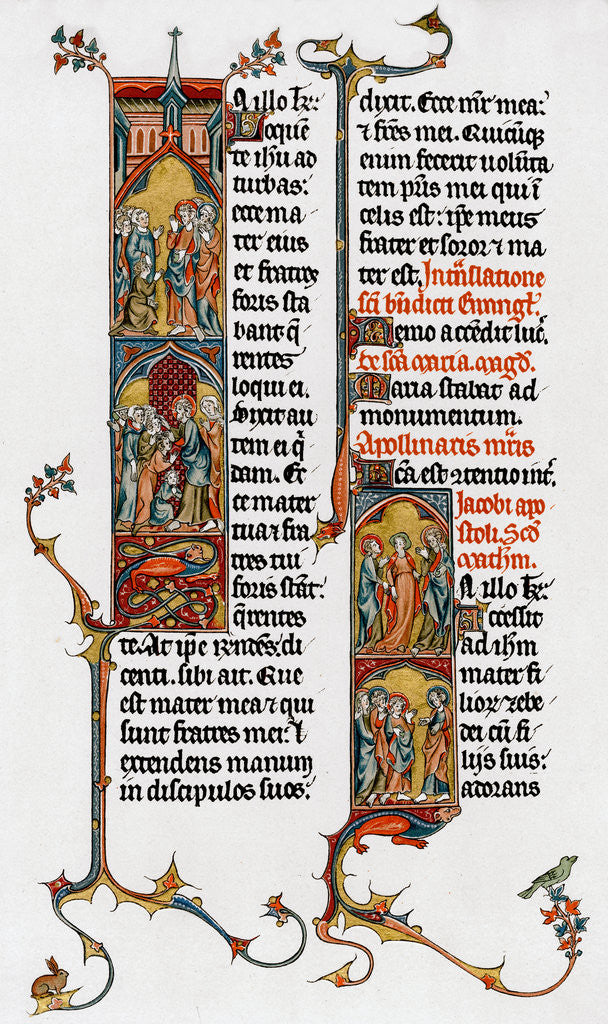 N illo t̄r:
Loquen
te ih̄u ad
turbas:
ecce ma
ter eius
et fratres
foris sta
bant q̄
rentes
loqui ei.
Dixit au
tem ei q̄
dam. Ec
ce mater
tua ⁊ fra
tres tui
foris stāt:
q̄rentes
te. At ip̄e
centi. sibi ait. Que
est mater mea ⁊ qui
sunt fratres mei:
extendens manum
in discipulos suos:
dixit. Ecce mr̄ mea:
⁊ fr̄es mei. Quicūq
enim fecerit uolūta
tem pr̄is mei qui ī
celis est: ip̄e meus
frater et soror ⁊ ma
ter est. In trāslatione
sc̄i bn̄dicti Ewangl̄.
Nemo accendit luc̄.
De sc̄a maria. magd̄.
Maria stabat ad
monumentum.
Apollinaris mr̄is
Fc̄a est ꝯtentio int̄.
Jacobi apo
stoli. Scd̄
Math̄m.
N illo t̄r:
Accessit
ad ih̄m
mater fi
lioꝝ zebe
dei cū fi
lijs suis:
adorans